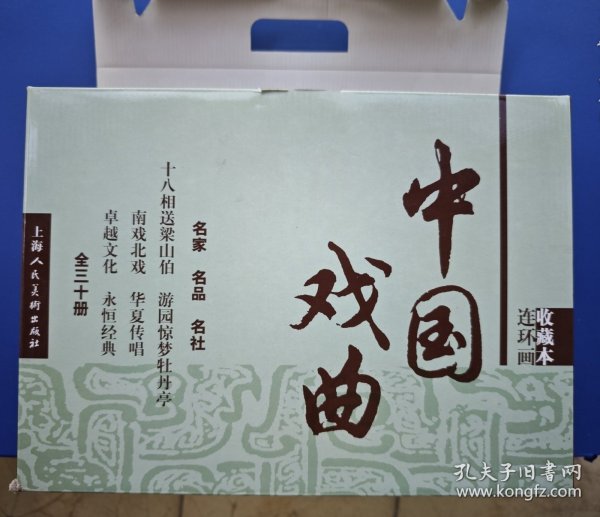 收藏本
连环画
中国
戏曲
名家 名品 名社
十八相送梁山伯 游园惊梦牡丹亭
南戏北戏 华夏传唱
卓越文化 永恒经典
全三十册
上海人民美術出版社
孔夫子旧书网
www.kongfz.com